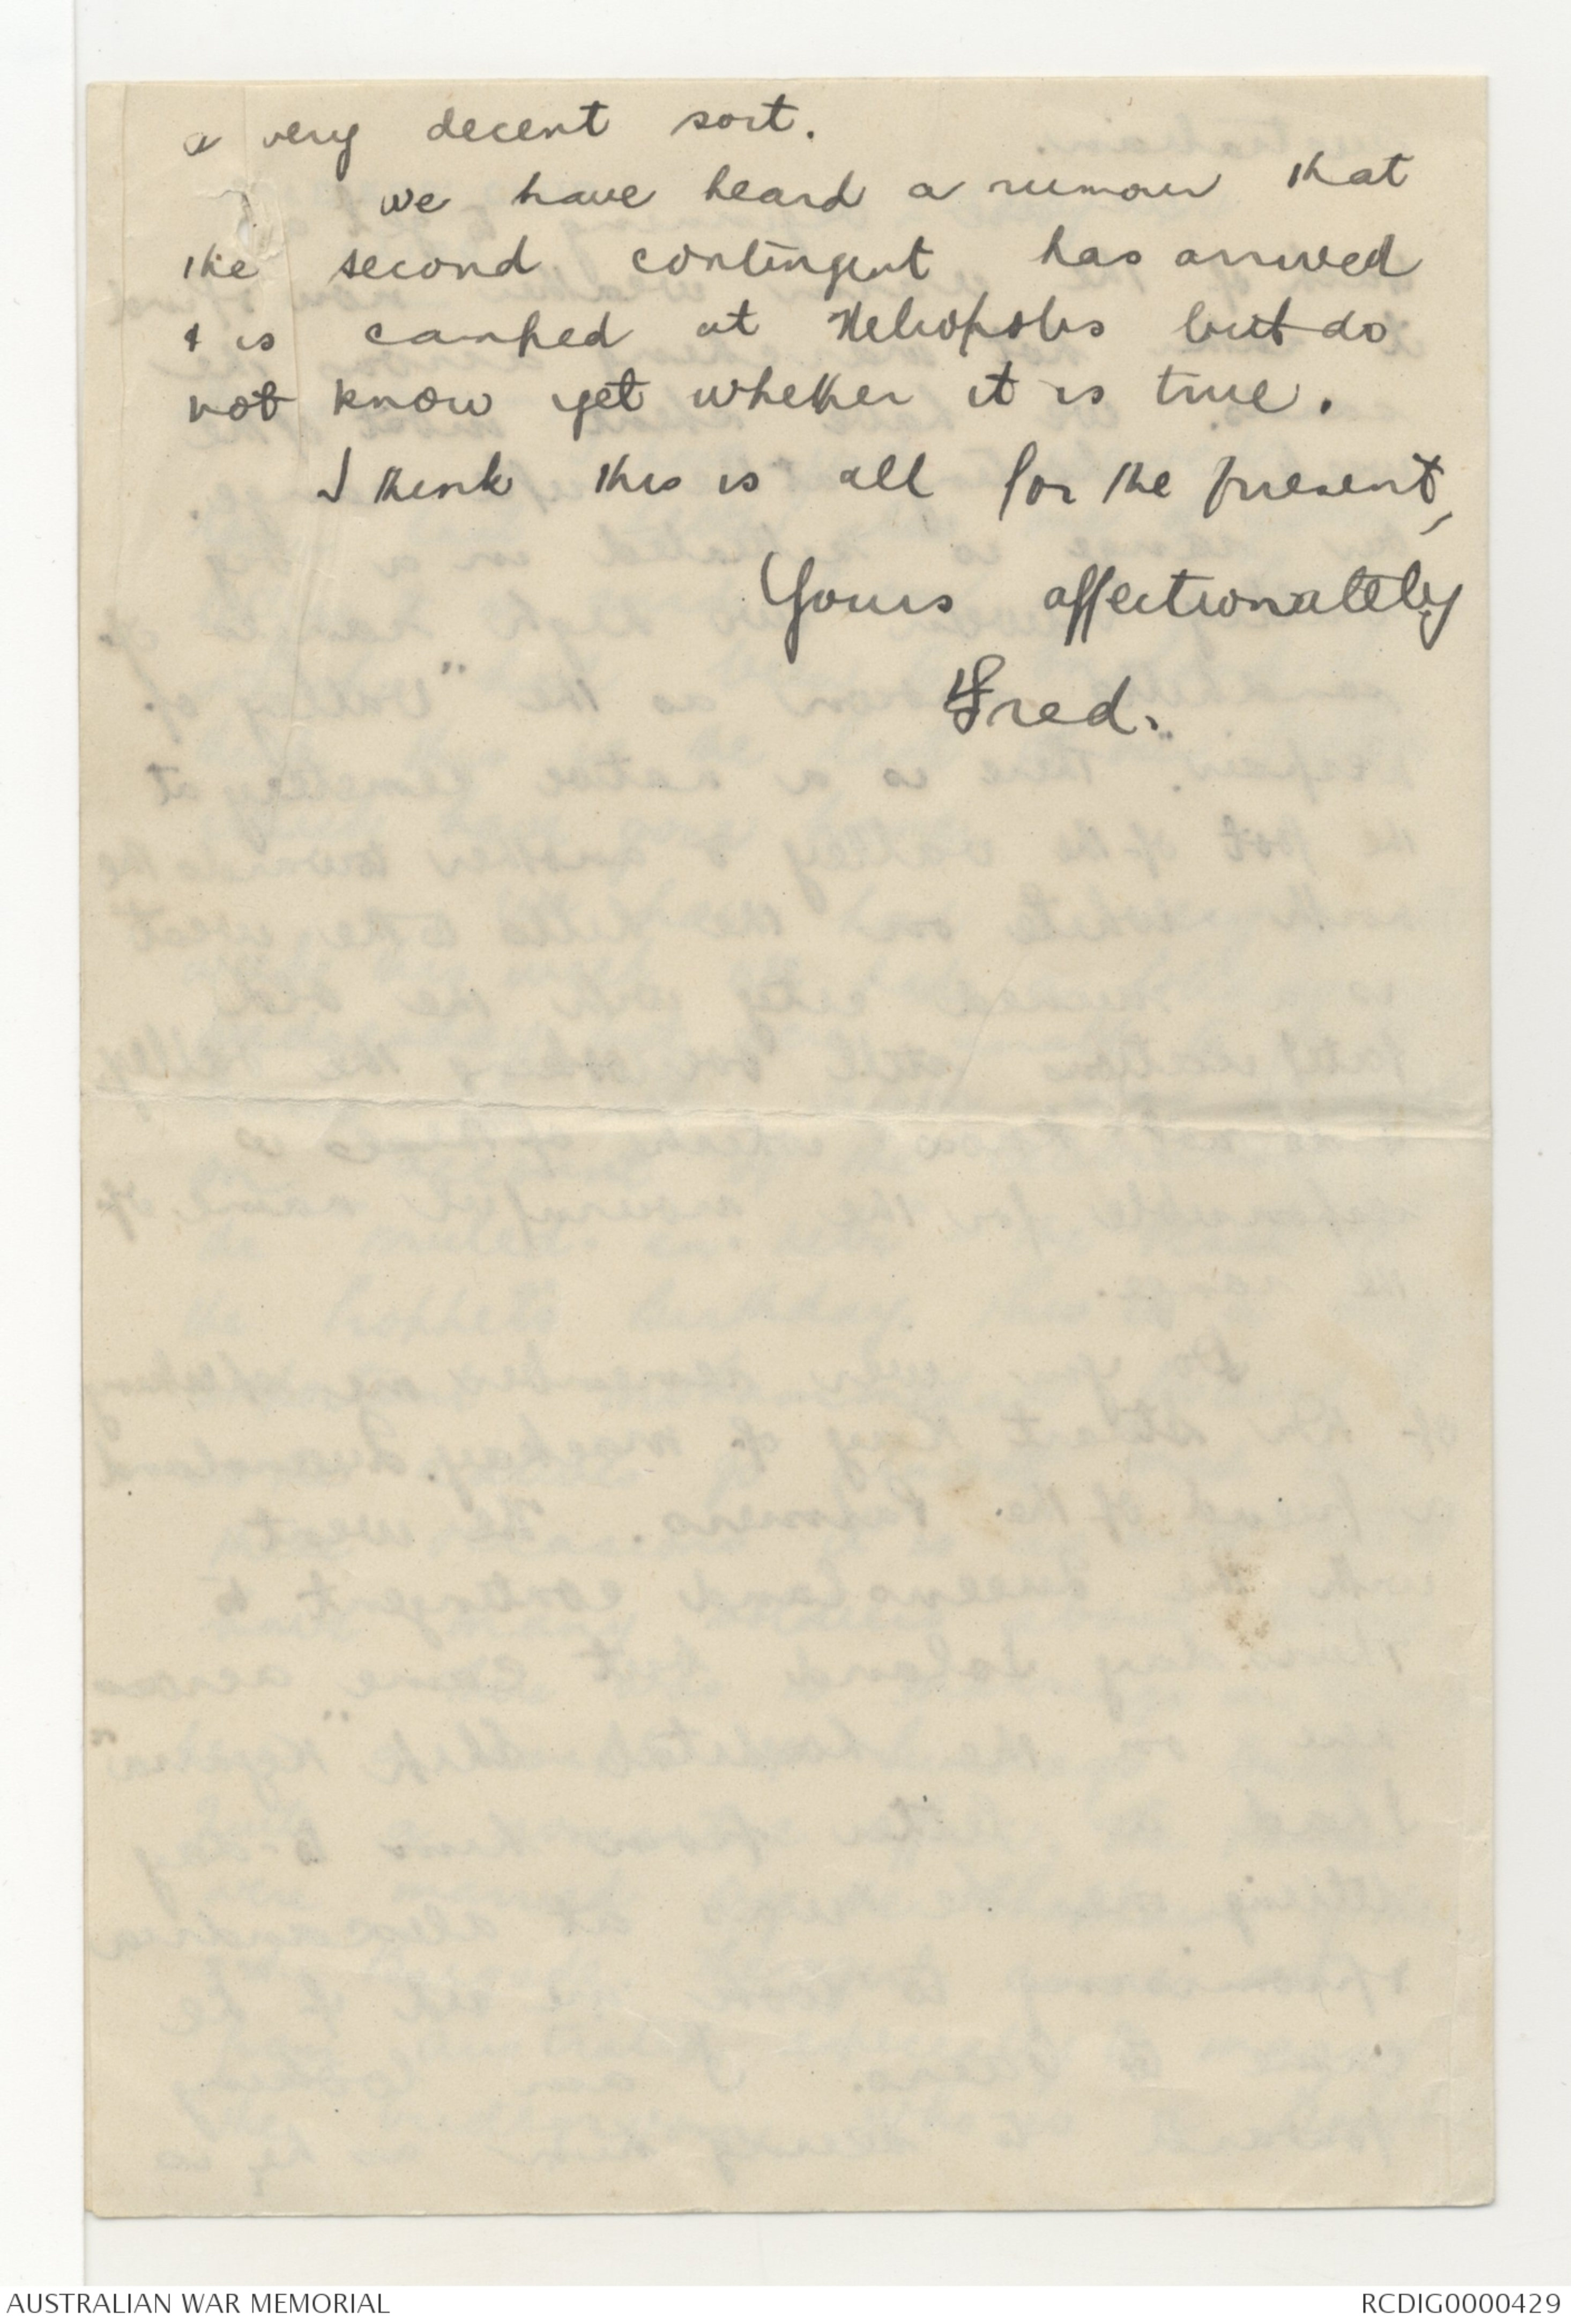 a very decent sort.
We have heard a rumour that
the second contingent has arrived
& is camped at Heliopolis but do
not know yet whether it is true.
I think this is all for the present,
Yours affectionately
Fred.
AUSTRALIAN WAR MEMORIAL
RCDIG0000429